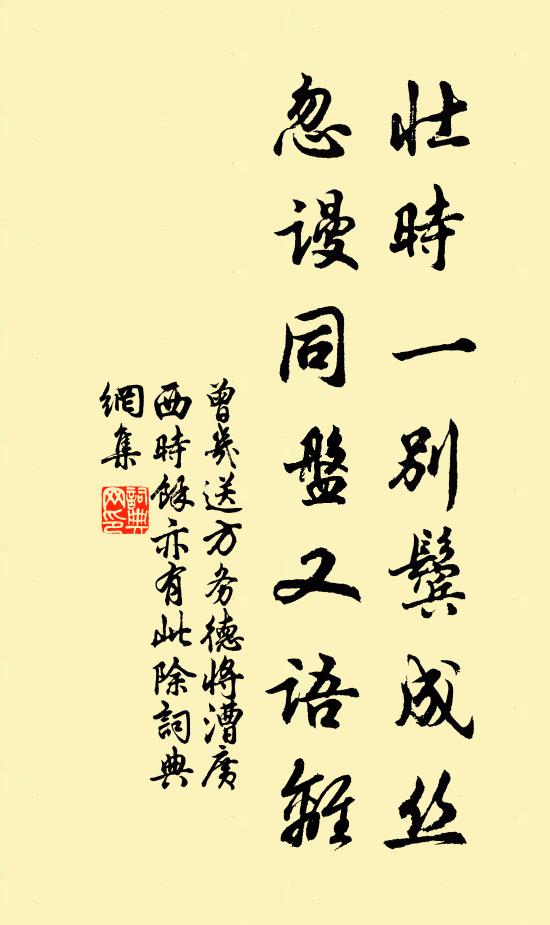 壮時一别鬓成丝
忽谩同盤又语離
曾幾送方务德将漕廣
西時餘亦有此除詞典
網集
詞典网印